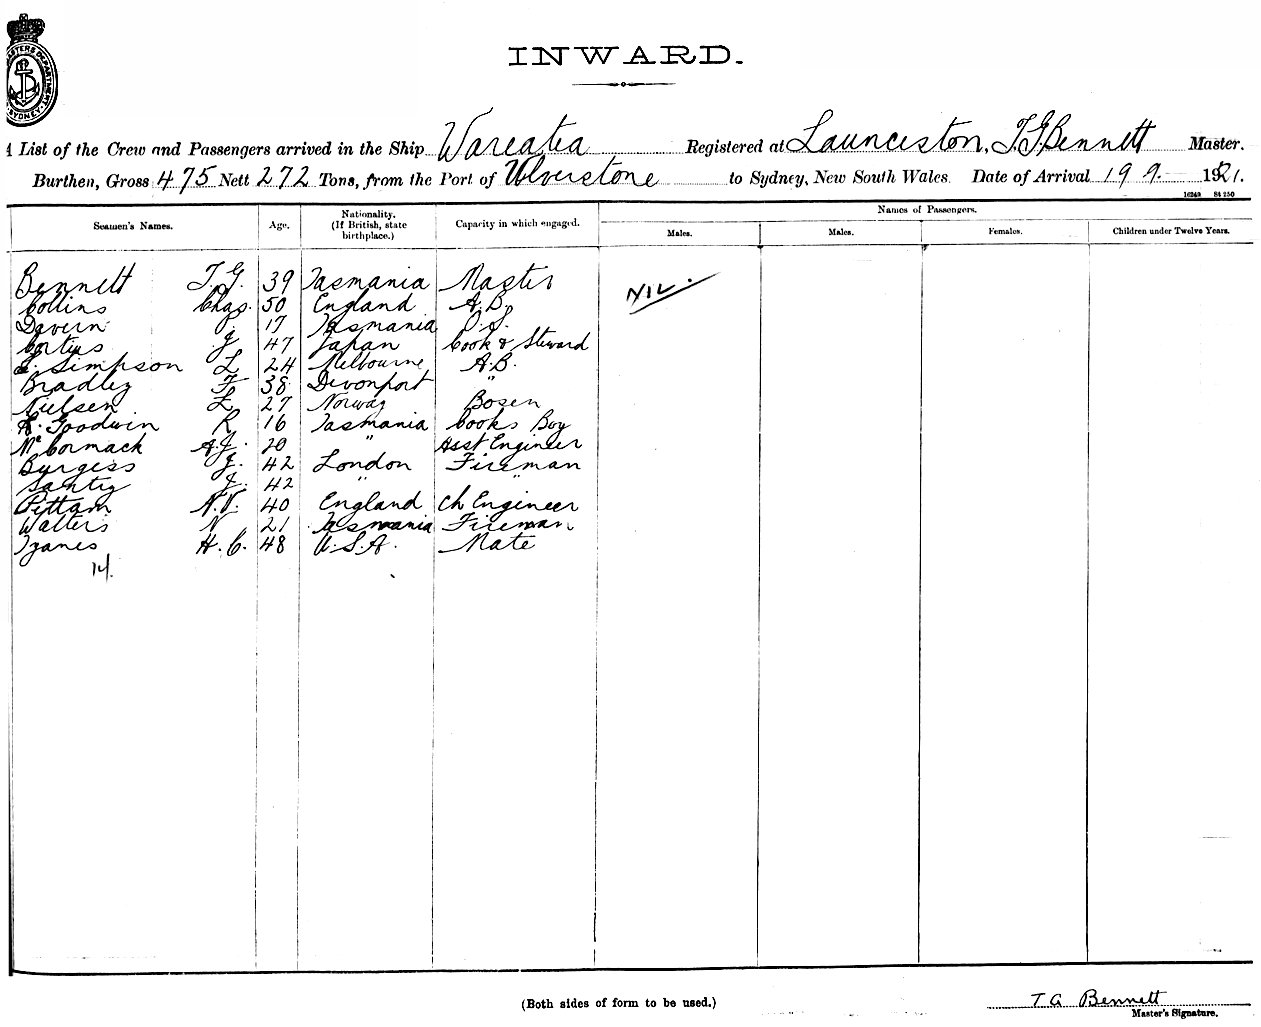 MASTERS DEPARTMENT
SYDNEY
INWARD.
A List of the Crew and Passengers arrived in the Ship Wareatea Registered at Launceston, T. G. Bennett Master.
Burthen, Gross 475 Nett 272 Tons, from the Port of Ulverstone to Sydney, New South Wales. Date of Arrival 19 9. 1921.
16249 84 250
Seamen's Names. Age. Nationality. (If British, state birthplace.) Capacity in which engaged. Names of Passengers.
Males. Males. Females. Children under Twelve Years.
Bennett T. G. 39 Tasmania Master NIL.
Collins Chas. 50 England A.B.
Davern J. 17 Tasmania O.S.
J 47 Japan Cook & Steward
Simpson L 24 Melbourne A.B.
Bradley F 38 Devonport "
Nielsen L 27 Norway Bosen
R. Goodwin R 16 Tasmania Cooks Boy
McCormack A.J. 20 " Asst Engineer
Burgess J. 42 London Fireman
J. 42 " "
Pittam N.V. 40 England Ch Engineer
Walters N 21 Tasmania Fireman
H. C. 48 U.S.A. Mate
14.
(Both sides of form to be used.)
T G Bennett
Master's Signature.